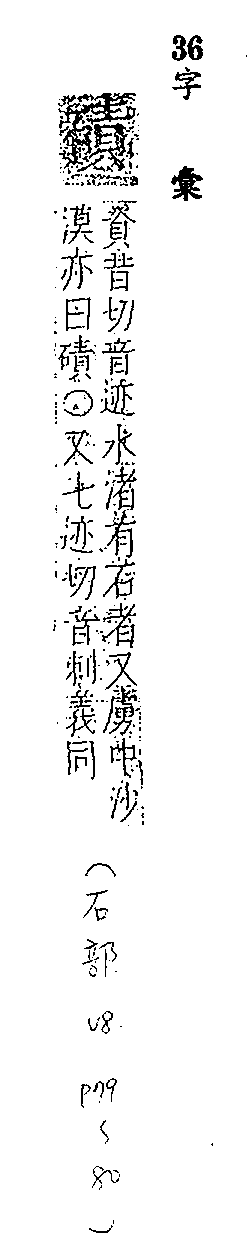 36
字彙
磧
資昔切音迹水渚有石者又虜中沙
漠亦曰磧○又七迹切音刺義同
(石部 V8. P79~80)